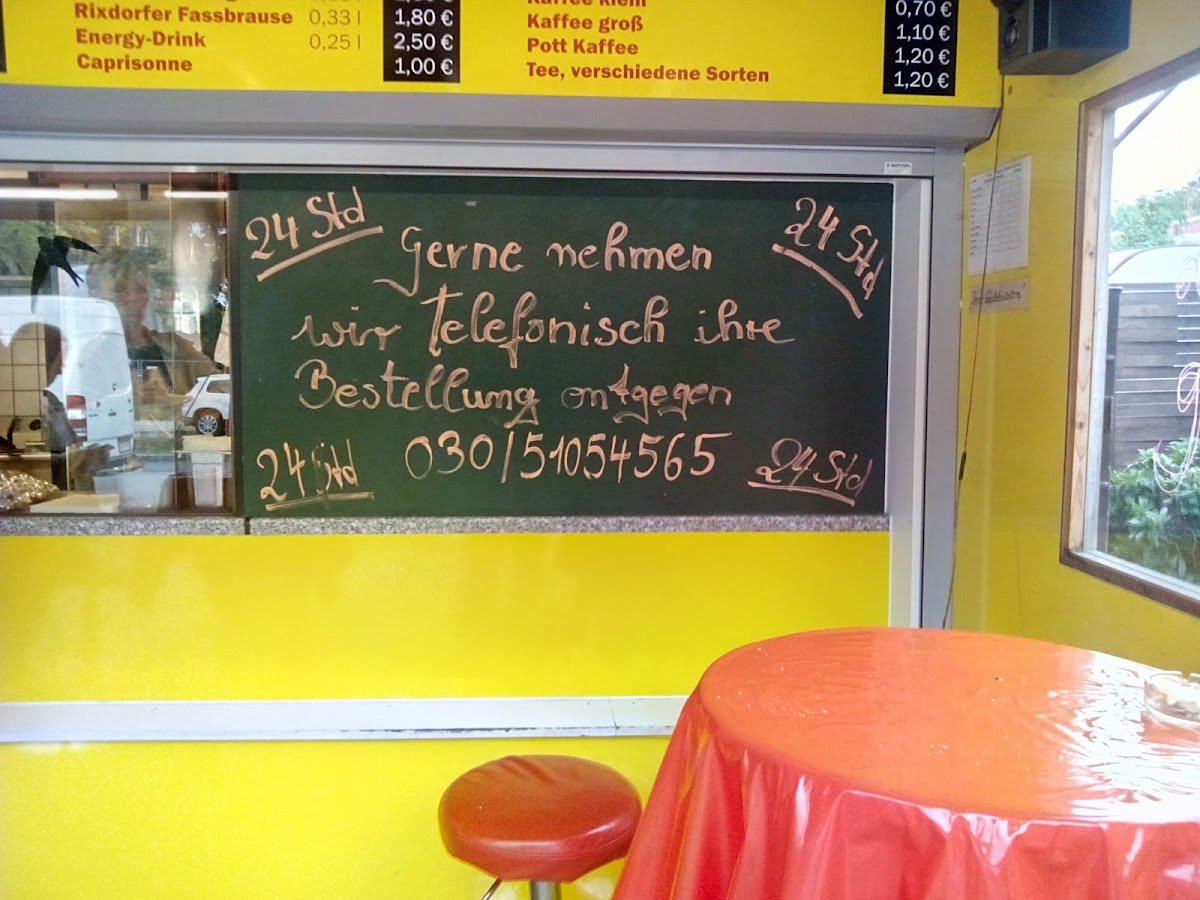 Rixdorfer Fassbrause 0,33 l 1,80 €
Energy-Drink 0,25 l 2,50 €
Caprisonne 1,00 €
0,70 €
Kaffee groß 1,10 €
Pott Kaffee 1,20 €
Tee, verschiedene Sorten 1,20 €
24 Std
24 Std
Gerne nehmen
wir Telefonisch ihre
Bestellung entgegen
030/51054565
24 Std
24 Std